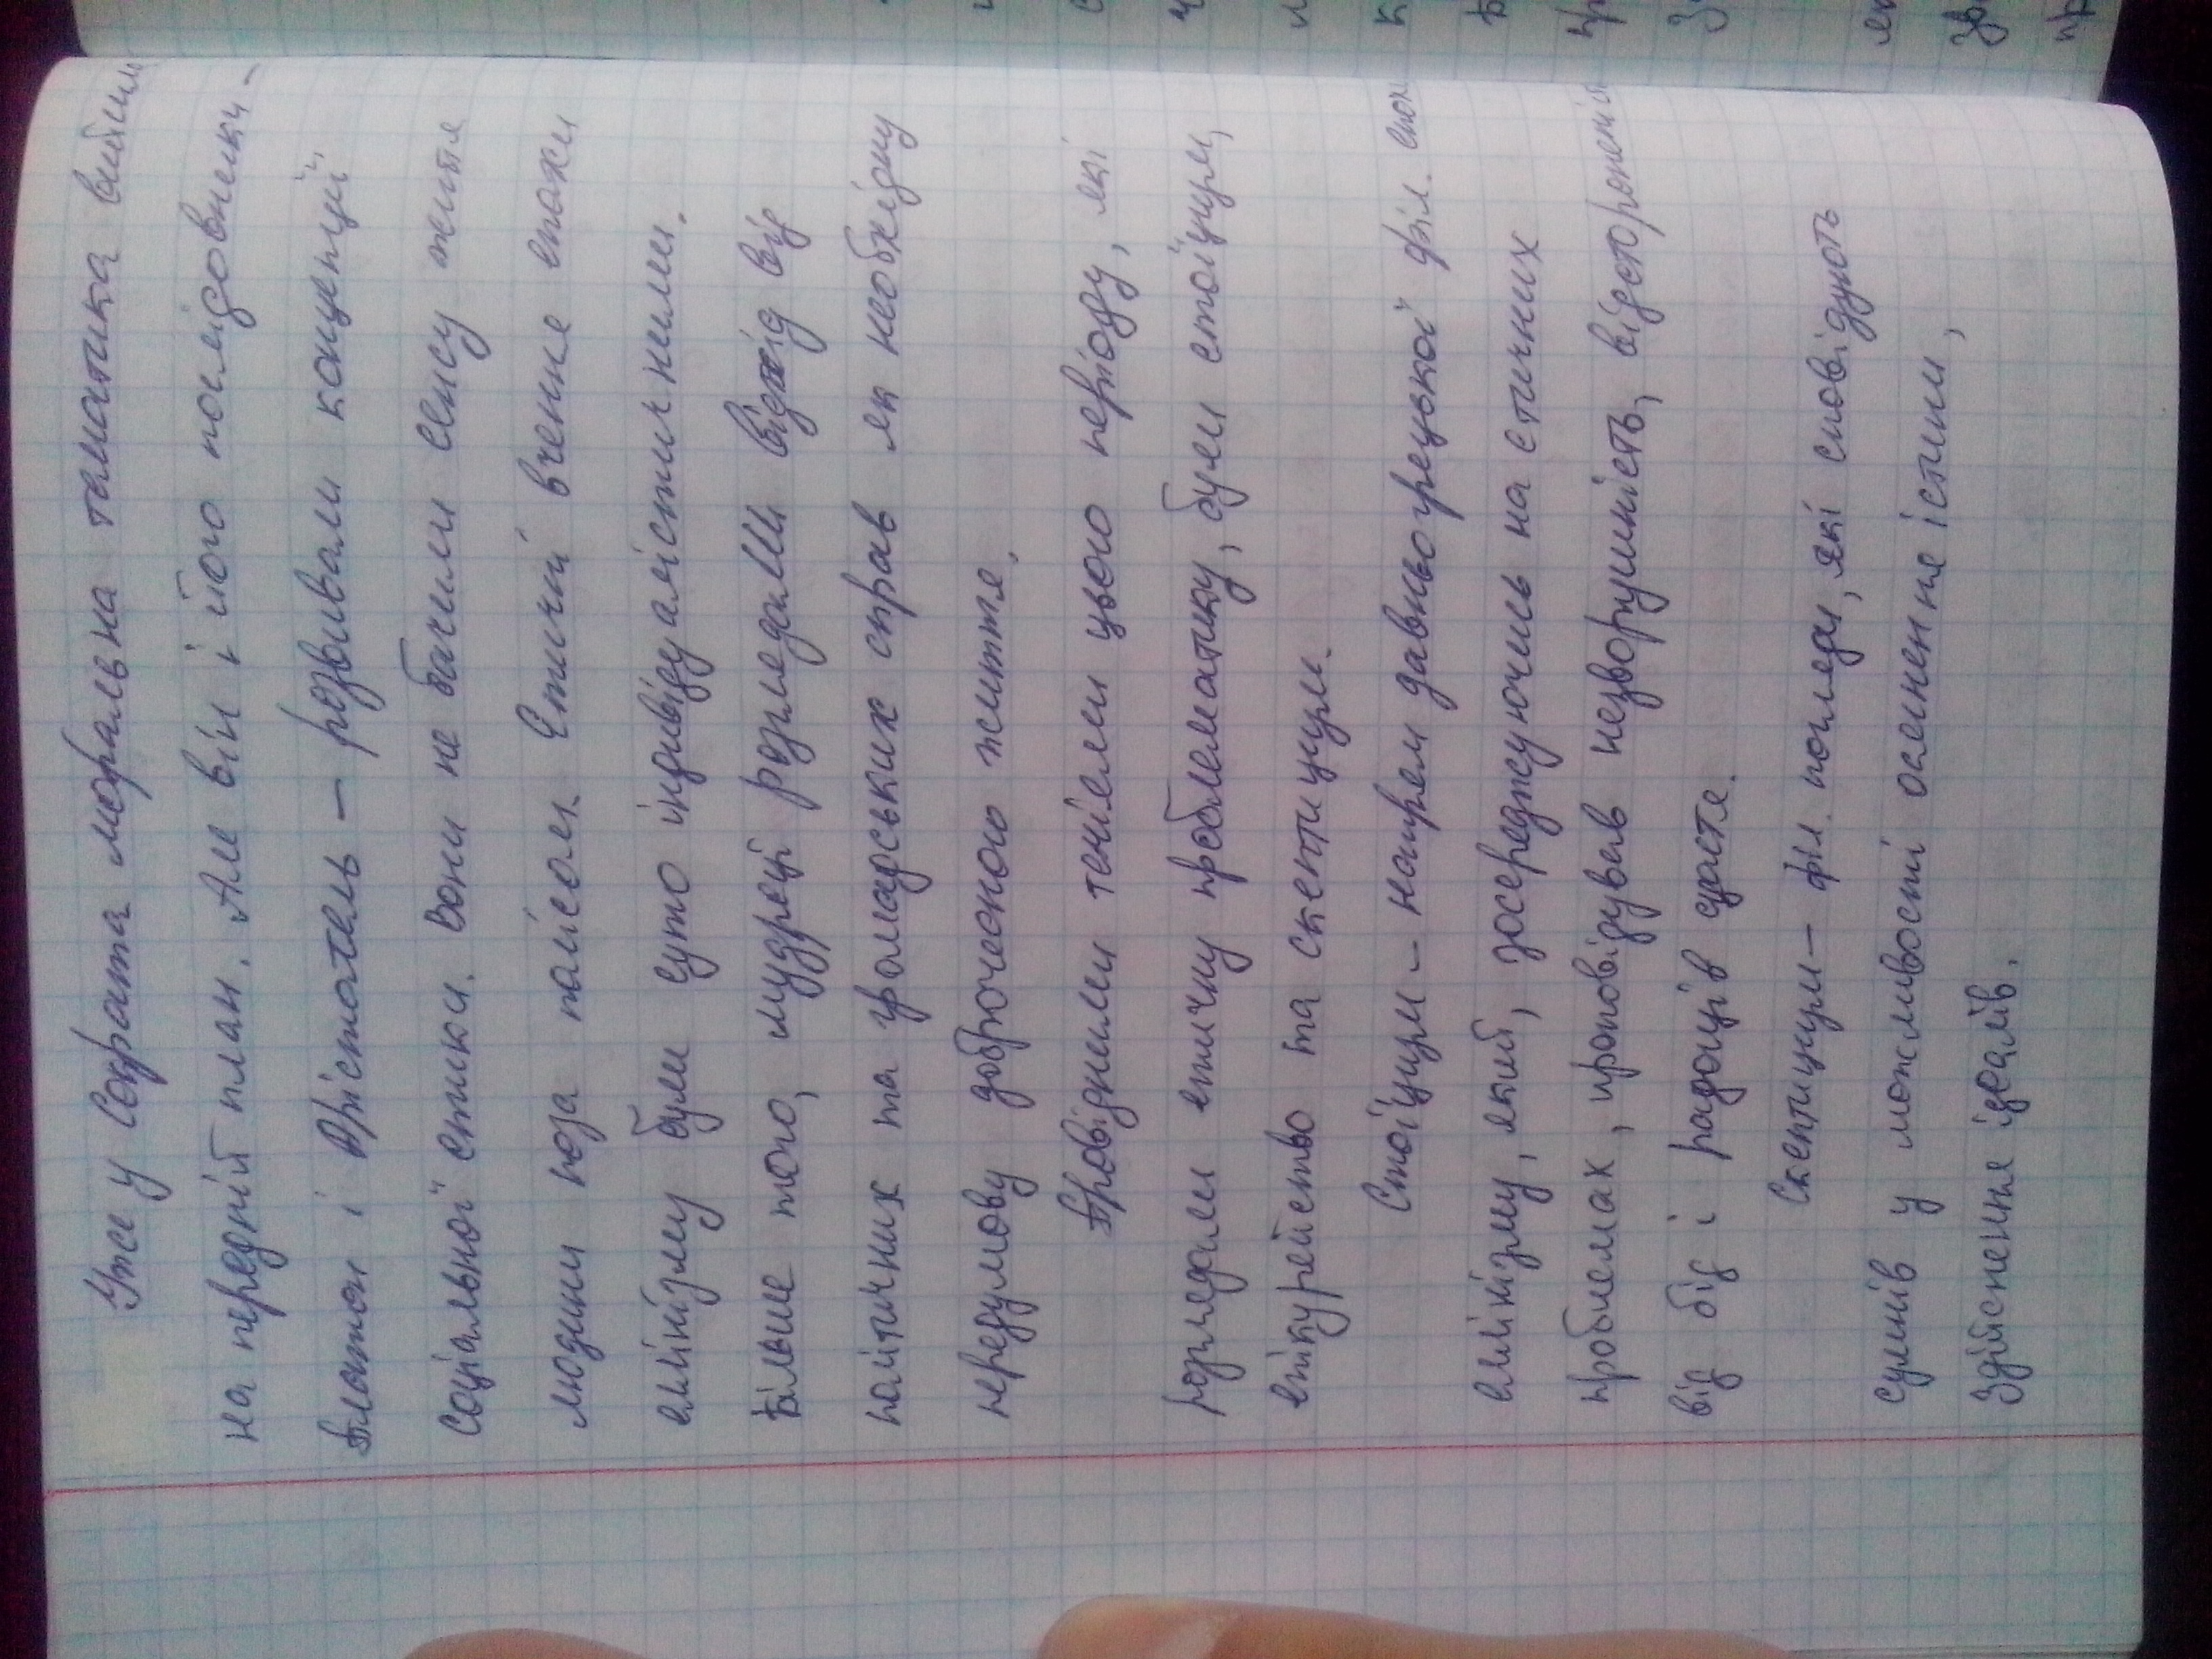 Уже у Сократа моральна тематика
на передній план. Але він і його послідовники –
Платон і Арістотель – розвивали концепції
соціальної етики. Вони не бачили сенсу життя
людини поза полісом. Етичні вчення епохи
еллінізму були суто індивідуалістичними.
Більше того, мудреці розглядали відхід від
політичних та громадських справ як необхідну
передумову доброчесного життя.
Провідними течіями цього періоду, які
розглядали етичну проблематику, були стоїцизм,
епікурейство та скептицизм.
Стоїцизм – напрям давньогрецької філ. епохи
еллінізму, який, зосереджуючись на етичних
проблемах, проповідував незворушність, відсторонення
від бід і радощів щастя.
Скептицизм – філ. погляди, які сповідують
сумнів у можливості осягнення істини,
здійснення ідеалів.